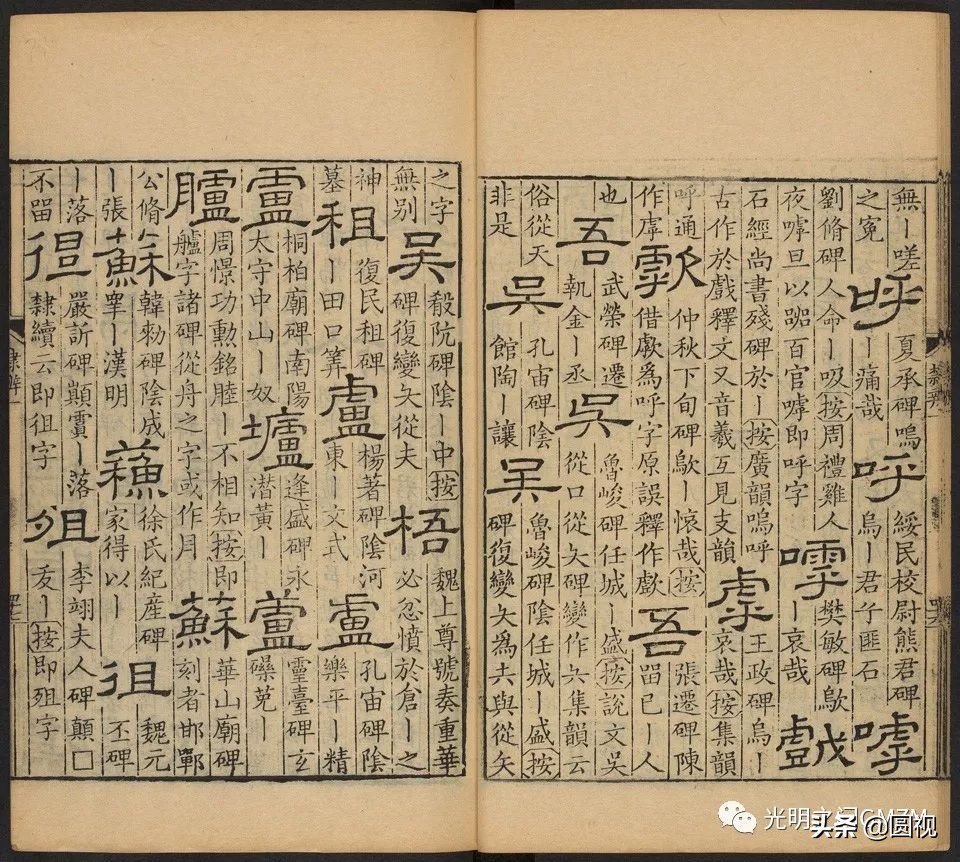 無ー嗟之寃
呼 夏承碑嗚ー痛哉
呼 綏民校尉熊君碑烏ー君兮匪石
嘑 劉脩碑人命ー吸按周禮雞人夜嘑旦以嘂百官嘑即呼字
樊敏碑歍ー哀哉
戲 石經尚書殘碑於ー按廣韻嗚呼古作於戲釋文又音羲互見支韻
虖 王政碑烏ー哀哉按集韻呼通作虖
歑 仲秋下旬碑歍ー懷哉按借歑為呼字原誤釋作歔
吾 張遷碑陳留已ー人也
吾 武榮碑遷執金ー丞
吳 魯峻碑任城ー盛按說文吳從口從夨碑變作六集韻云俗從天非是
吳 孔宙碑陰館陶ー讓
吳 魯峻碑陰任城ー盛按碑復變夨為共與從矢
之字無別
吳 殽阬碑陰ー中按碑復變夨從夫
梧 魏上尊號奏重華必忽憤於倉ー之神墓
租 復民租碑ー田口筭
盧 楊著碑陰河東ー文式
盧 孔宙碑陰樂平ー精
盧 桐柏廟碑南陽太守中山ー奴
壚 逢盛碑永潛黃ー
蘆 靈臺碑玄礫菟ー
臚 周憬功勳銘睦ー不相知按即艫字諸碑從舟之字或作月
蘇 華山廟碑刻者邯鄲公脩ー
蘇 韓勑碑陰成睾ー漢明張ー
蘇 徐氏紀產碑家得以ー
徂 魏元丕碑ー落
徂 嚴訢碑顛霣ー落不留
徂 李翊夫人碑顛□犮ー按即殂字隸續云即徂字
隸辨
光明之门GMZM
头条 @圆视